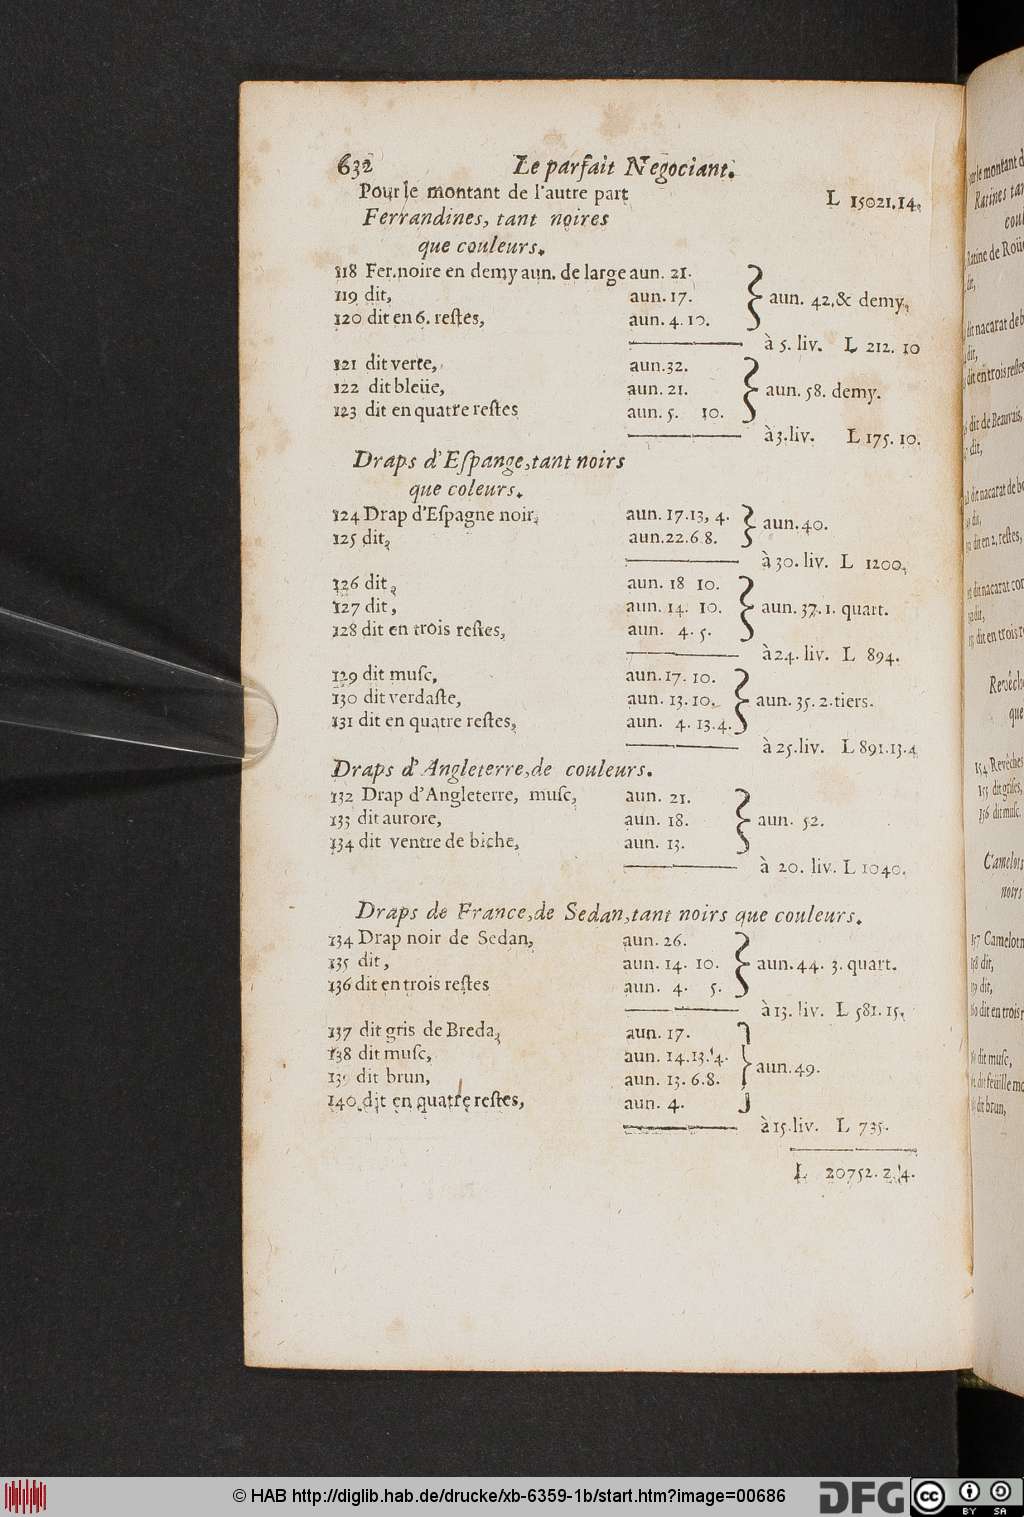 632 Le parfait Negociant.
Pour le montant de l'autre part L 15021.14.
Ferrandines, tant noires
que couleurs.
118 Fer.noire en demy aun. de large aun. 21.
119 dit, aun. 17. aun. 42.& demy,
120 dit en 6. restes, aun. 4. 10.
à 5. liv. L 212. 10
121 dit verte, aun.32.
122 dit bleüe, aun. 21. aun. 58. demy.
123 dit en quatre restes aun. 5. 10.
à 3.liv. L 175. 10.
Draps d'Eſpange,tant noirs
que coleurs.
124 Drap d'Eſpagne noir, aun. 17.13, 4. aun.40.
125 dit, aun.22.6 8.
à 30. liv. L 1200,
126 dit, aun. 18 10.
127 dit, aun. 14. 10. aun. 37. 1. quart.
128 dit en trois reſtes, aun. 4. 5.
à 24. liv. L 894.
129 dit muſc, aun.17. 10.
130 dit verdaſte, aun. 13.10. aun. 35. 2.tiers.
131 dit en quatre reſtes, aun. 4. 13.4.
à 25.liv. L 891.13.4
Draps d'Angleterre,de couleurs.
132 Drap d'Angleterre, muſc, aun. 21.
133 dit aurore, aun. 18. aun. 52.
134 dit ventre de biche, aun. 13.
à 20. liv. L 1040.
Draps de France,de Sedan,tant noirs que couleurs.
134 Drap noir de Sedan, aun. 26.
135 dit, aun. 14. 10. aun. 44. 3. quart.
136 dit en trois reſtes aun. 4. 5.
à 13. liv. L 581. 15.
137 dit gris de Breda, aun. 17.
138 dit muſc, aun. 14.13. 4. aun. 49.
dit brun, aun. 13. 6.8.
140 dit en quatre reſtes, aun. 4.
à 15.liv. L 735.
L 20752. 2. 4.
Ratine de
dit,
dit nacarat de
dit,
dit en trois reſtes
dit de Beauvais,
dit,
dit nacarat de
dit,
dit en 2. reſtes,
dit nacarat
dit,
dit en trois
que
154 Revêches
155 dit griſes,
156 dit muſc.
Camelots
noirs
157
158 dit,
dit,
dit en trois
dit muſc,
dit feüille
dit brun,
© HAB http://diglib.hab.de/drucke/xb-6359-1b/start.htm?image=00686
DFG
cc BY SA